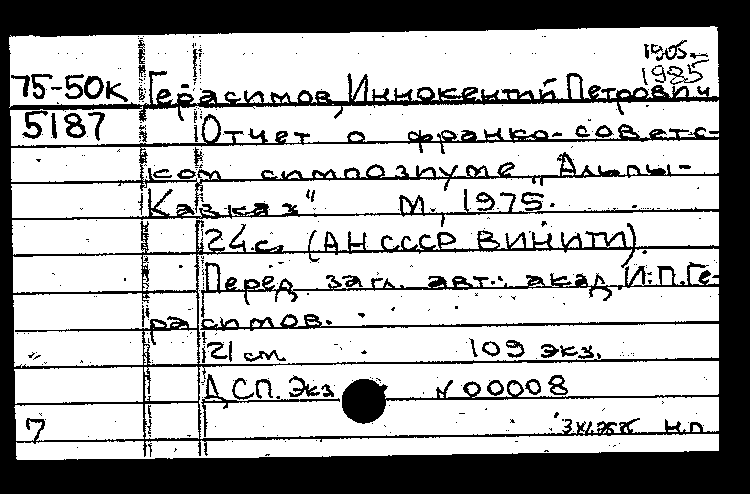 1905-
1985
75-50к Герасимов, Иннокентий Петрович
5187 Отчет о франко-советс-
ком симпозиуме „Альпы-
Кавказ" М., 1975.
24 с. (АН СССР ВИНИТИ).
Перед загл. авт.: акад. И.П.Ге-
расимов.
21 см. 109 экз.
ДСП. Экз № 00008
7 Н.П